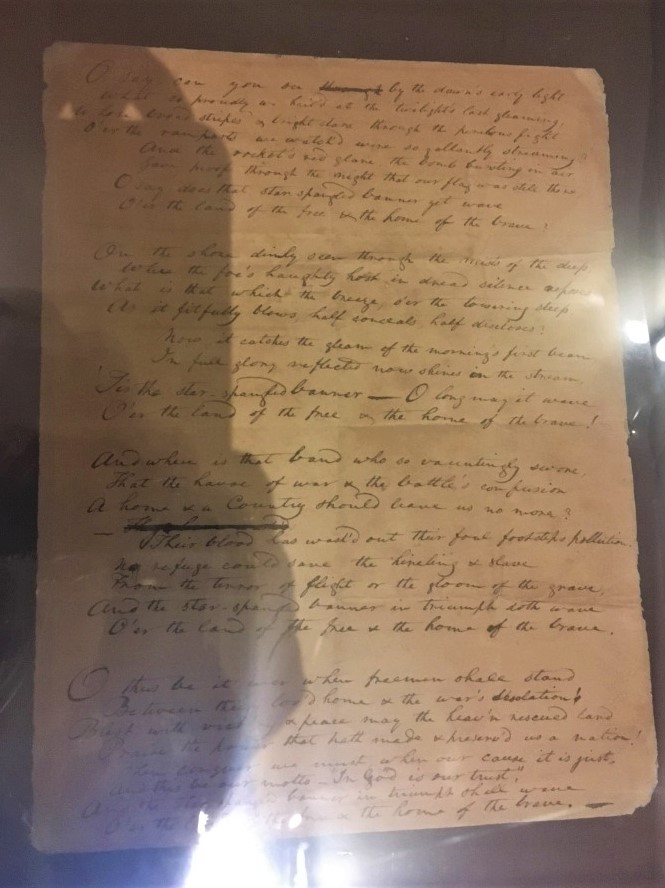 O say can you see through by the dawn's early light
What so proudly we hail'd at the twilight's last gleaming,
Whose broad stripes & bright stars through the perilous fight
O'er the ramparts we watch'd were so gallantly streaming?
And the rocket's red glare, the bomb bursting in air,
Gave proof through the night that our flag was still there
O say does that star-spangled banner yet wave
O'er the land of the free & the home of the brave?
On the shore dimly seen through the mists of the deep,
Where the foe's haughty host in dread silence reposes,
What is that which the breeze, o'er the towering steep,
As it fitfully blows, half conceals, half discloses?
Now it catches the gleam of the morning's first beam,
In full glory reflected now shines in the stream,
'Tis the star-spangled banner — O long may it wave
O'er the land of the free & the home of the brave!
And where is that band who so vauntingly swore,
That the havoc of war & the battle's confusion
A home & a Country should leave us no more?
— Their blood has wash'd out their foul footsteps pollution.
No refuge could save the hireling & slave
From the terror of flight or the gloom of the grave,
And the star-spangled banner in triumph doth wave
O'er the land of the free & the home of the brave.
O thus be it ever when freemen shall stand
Between their lov'd home & the war's desolation!
Blest with & peace may the heav'n rescued land
Praise the power that hath made & preserv'd us a nation!
Then conquer we must, when our cause it is just,
And this be our motto — "In God is our trust",
And the banner in triumph shall wave
O'er the the free & the home of the brave. —